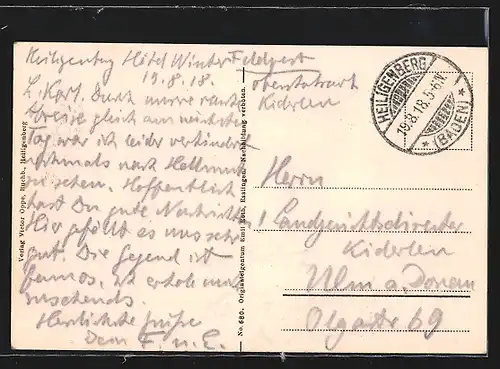 Heiligenberg Hôtel Winter
19.8.18.
L. Karl. Durch unsere
Abreise gleich am nächsten
Tag war ich leider verhindert
nochmals nach Hellmut
zu sehen. Hoffentlich
hast Du gute Nachricht.
Hier gefällt es uns sehr
gut. Die Gegend ist
famos, ich erhole mich
zusehends.
Herzlichste Grüße
Dein F. u. E.
Verlag Victor Oppe, Buchh., Heiligenberg
No. 680. Originaleigentum Emil Roth, Esslingen. Nachbildung verboten.
Feldpost
Oberstabsarzt
Kiderlen
HEILIGENBERG
19.8.18.5-6N.
* (BADEN) *
Herrn
Landgerichtsdirektor
Kiderlen
Ulm a. Donau
Olgastr 69